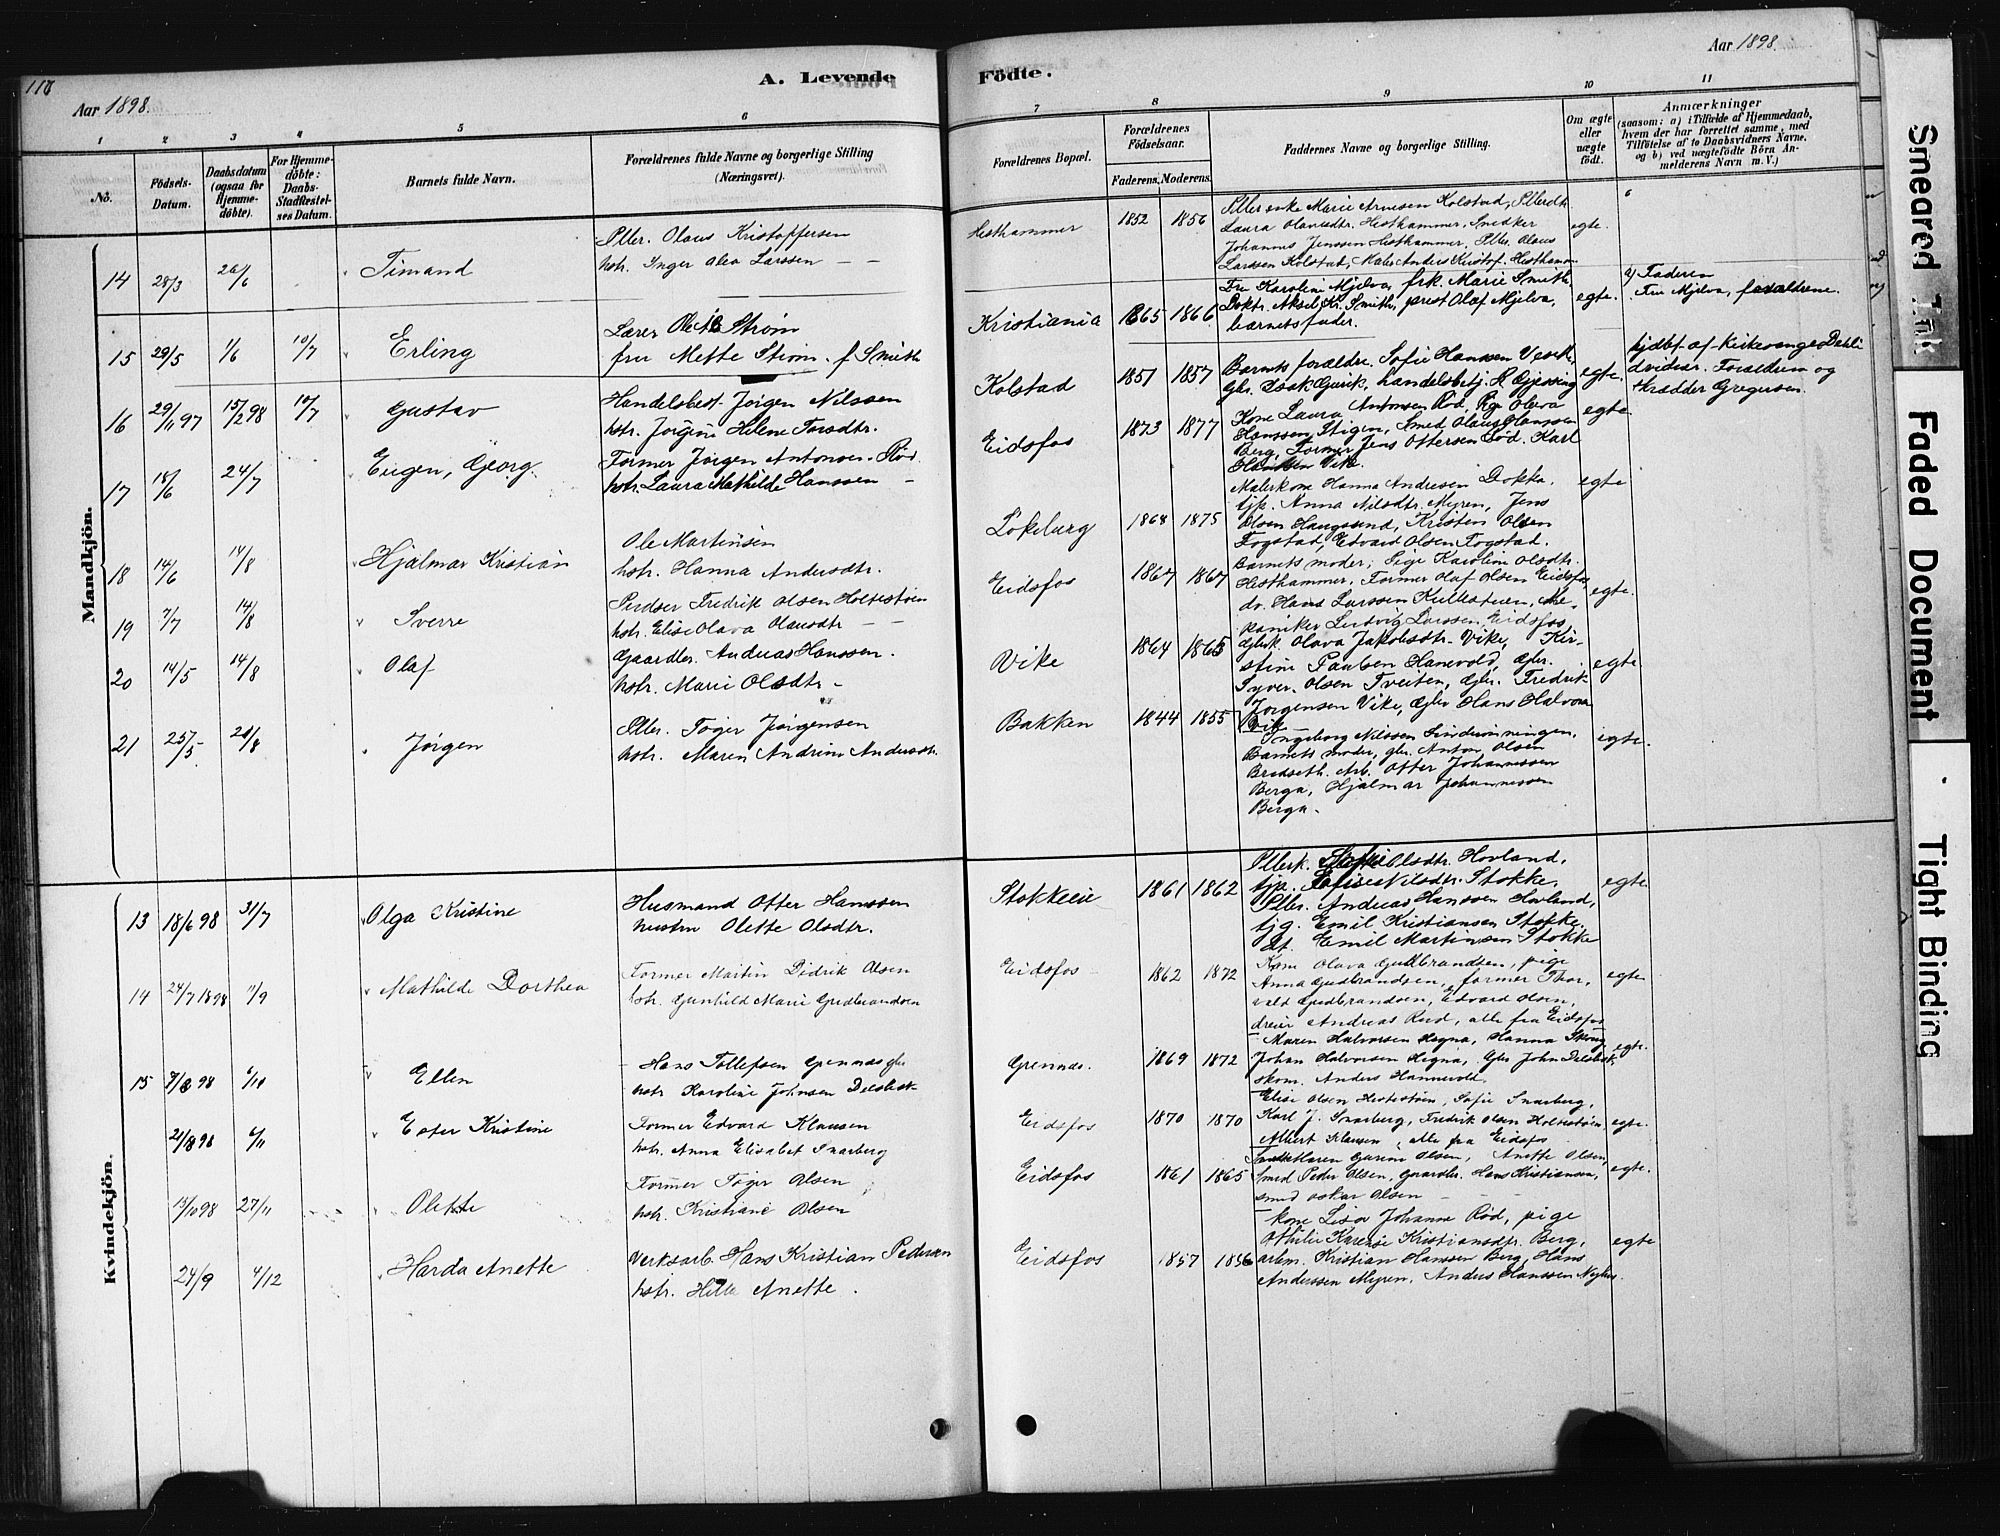 118
Aar 1898.
A. Levende
Födte.
Aar 1898.
1 2 3 4 5 6 7 8 9 10 11
No.
Födsels-Datum.
Daabsdatum (ogsaa for Hjemmedöbte).
For Hjemmedöbte: Daabs-Stadfæstelses Datum.
Barnets fulde Navn.
Forældrenes fulde Navne og borgerlige Stilling (Næringsvei).
Forældrenes Bopæl.
Forældrenes Födselsaar.
Faderens. Moderens.
Faddernes Navne og borgerlige Stilling.
Om ægte eller uægte födt.
Anmærkninger
(saasom: a) i Tilfælde af Hjemmedaab, hvem der har forrettet samme, med Tilföielse af to Daabsvidners Navne, og b) ved uægtefödte Börn Anmelderens Navn m. V.)
Mandkjön.
14 28/3 26/6 Timand
Pller. Olaus Kristoffersen
hstr. Inger Olea Larssen
Hesthammer 1852 1856
Laura Olavesdtr. Hesthammer, Snedker
Johannes Jenssen Hesthammer, Pller. Olaus
Larssen Kolstad, Maler Anders Kristof. Hestham
egte.
15 29/5 1/6 10/7 Erling
Lærer Ole B Strøm
fru Mette Strøm. f. Smith
Kristiania 1865 1866
Fru Karoline Mjelva, frk. Marie Smith,
Doktr. Aksel Kr. Smith, prest Olaf Mjelva,
barnets fader.
egte.
a) Faderen
Fru Mjelva, forældrene.
16 29/11 97 15/2 98 10/7 Gustav
Handelsbest. Jörgen Nilssen
hstr. Jörgine Helene Torsdtr.
Kolstad 1851 1857
Barnets forældre. Sofie Hanssen Vestb,
handelsbetj. H. Gjessing
egte.
hjdbt. af Kirkesanger Dahl
dvidner. Forældrene og
Skrædder Gregersen.
17 18/6 24/7 Eugen, Georg.
Former Jörgen Antonsen Röd
hstr. Laura Mathilde Hanssen
Eidsfos 1873 1877
Kone Laura Antonsen Röd, Pige Olava
Hanssen Stigen, Smed Olaus Hanssen
Berg, Former Jens Ottersen Röd. Karl
Hanssen Vike.
egte.
18 14/6 14/8 Hjalmar Kristian
Ole Martinsen
hstr. Hanna Andersdtr.
Lökeberg 1868 1875
Malerkone Hanna Andresen Dokka,
tjp. Anna Nilsdtr. Myren, Jens
Olsen Haugsund, Kristen Olsen
Fogstad, Edvard Olsen Fogstad.
egte
19 7/7 14/8 Sverre
Fredrik Olsen Holtestøen
hstr. Elise Olava Olausdtr
Eidsfos 1867 1867
Barnets moder; Pige Karoline Olsdtr.
Hesthammer, Former Olaf Olsen Eidsfos
Hans Larssen Kullestuen, Me-
kaniker Ludvig Larssen, Eidsfos
egte.
20 14/5 14/8 Olaf
Gaardbr. Andreas Hanssen.
hstr. Marie Olsdtr
Vike 1864 1865
Gbrk. Olava Jakobsdtr. Vike, Kir-
stine Paulsen Hanevold, Gbr.
Syver Olsen Tveiten, Gbr. Fredrik
Jörgensen Vike, Gbr Hans Halvors
Vike
egte
21 25/5 28/8 Jörgen
Pller. Töger Jørgensen
hstr. Maren Andrine Andersdtr.
Bakken 1844 1855
Ingeborg Nilssen
Barnets moder, gbr. Anton Olsen
Bredseth. Arb. Otter Johannessen
Berga, Hjalmar Johannessen
Berga.
egte.
Kvindekjön.
13 18/6 98 31/7 Olga Kristine
Husmand Otter Hanssen
hustru Olette Olsdtr.
Stokkeeie 1861 1862
Pllerk. Olsdtr. Hovland,
tjp. Nilsdtr. Stokke,
Pller. Andreas Hanssen Hovland,
tjg. Emil Kristiansen Stokke,
Emil Martinsen Stokke
egte
14 24/7 1898 11/9 Mathilde Dorthea
Former Martin Didrik Olsen
hstr. Gunhild Marie Gudbrandsen
Eidsfos 1862 1872
Kone Olava Gudbrandsen, pige
Anna Gudbrandsen, former Thor-
vald Gudbrandsen, Edvard Olsen,
dreier Andreas Rud, alle fra Eidsfos
egte
15 7/8 98 Ellen
Hans Tollefsen Grennæs gbr
hstr Karoline Johnsen
Grennæs. 1869 1872
Maren Halvorsen Hegna, Hanna
Johan Halvorsen Hegna, Gbr John
skom. Anders Hannevold
egte.
21/8 98 6/11 Ester Kristine
Former Edvard Klausen
hstr. Anna Elisabet Snarberg
Eidsfos 1870 1870
Elise Olsen, Sofie Snarberg,
Karl J. Snarberg, Fredrik Olsen Holtestöen
Albert Klausen, alle fra Eidsfos
egte.
27/11 Olette
Former Töger Olsen
hstr. Kristiane Olsen
Eidsfos 1861 1865
Maren Gurine Olsen, Anette Olsen,
Smed Peder Olsen, Gaardbr. Hans Kristiansen,
smed Oskar Olsen
egte.
24/9 4/12 Harda Anette
Verksarb. Hans Kristian Pedersen
hstr. Anette.
Eidsfos 1857 1856
kone Lisa Johanne Röd, pige
Othilie Karense Kristiansdtr. Berg,
arbm. Kristian Hanssen Berg, Hans
Anderssen Myren, Anders Hanssen
egte
Smeared Ink
Faded Document
Tight Binding